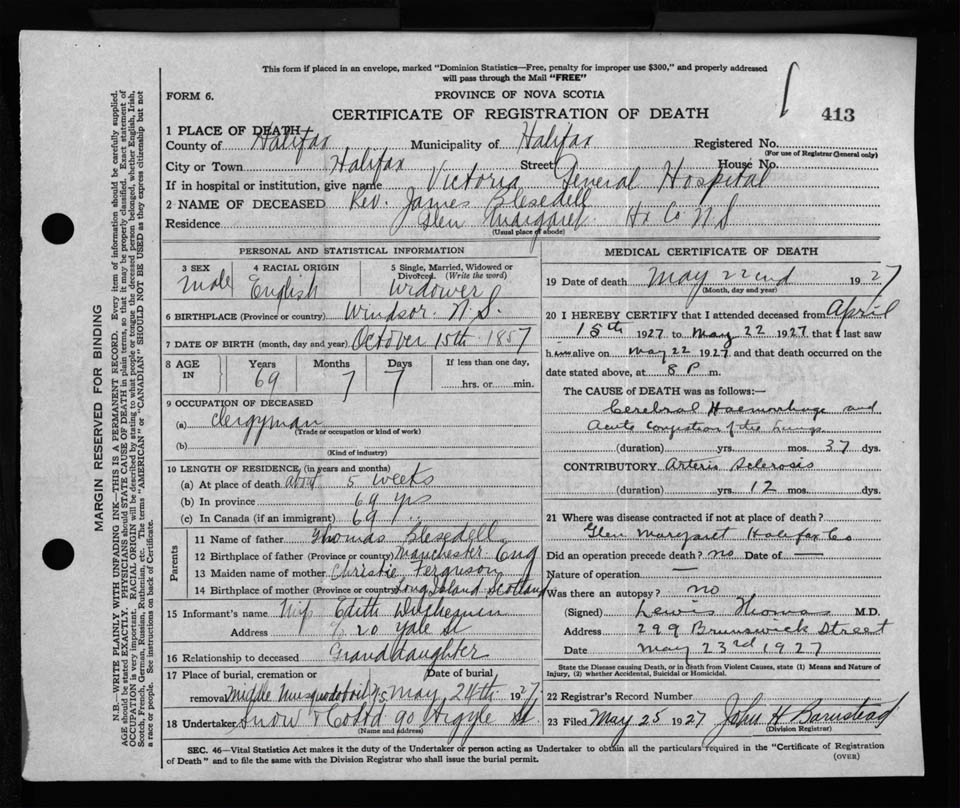 This form if placed in an envelope, marked "Dominion Statistics—Free, penalty for improper use $300," and properly addressed
will pass through the Mail "FREE"
FORM 6.
PROVINCE OF NOVA SCOTIA
CERTIFICATE OF REGISTRATION OF DEATH
413
1 PLACE OF DEATH
County of Halifax Municipality of Halifax Registered No.
(For use of Registrar General only)
City or Town Halifax Street House No.
If in hospital or institution, give name Victoria General Hospital
2 NAME OF DECEASED Rev. James Blesedell
Residence Glen Margaret Hx Co N S
(Usual place of abode)
PERSONAL AND STATISTICAL INFORMATION
3 SEX 4 RACIAL ORIGIN 5 Single, Married, Widowed or
Divorced. (Write the word)
Male English Widower
6 BIRTHPLACE (Province or country) Windsor N.S.
7 DATE OF BIRTH (month, day and year) October 15th 1857
8 AGE IN Years Months Days If less than one day,
69 7 7 hrs. or min.
9 OCCUPATION OF DECEASED
(a) Clergyman
(Trade or occupation or kind of work)
(b)
(Kind of industry)
10 LENGTH OF RESIDENCE, (in years and months)
(a) At place of death about 5 weeks
(b) In province 69 yrs
(c) In Canada (if an immigrant) 69
Parents
11 Name of father Thomas Blesedell
12 Birthplace of father (Province or country) Manchester Eng
13 Maiden name of mother Christie Ferguson
14 Birthplace of mother (Province or country) Long Island Scotland
15 Informant's name Mrs Edith
Address % 20 Yale St
16 Relationship to deceased Granddaughter
17 Place of burial, cremation or Date of burial
removal Middle Musquodoboit NS May 24th 1927
18 Undertaker Snow & Co Ltd 90 Argyle St.
(Name and address)
MEDICAL CERTIFICATE OF DEATH
19 Date of death May 22nd 1927
(Month, day and year)
20 I HEREBY CERTIFY that I attended deceased from April
15th 1927 to May 22 1927 that I last saw
him alive on May 22 1927 and that death occurred on the
date stated above, at 8 P m.
The CAUSE OF DEATH was as follows:—
Cerebral Haemorrhage and
Acute Congestion of the Lungs
(duration) yrs. mos. 37 dys.
CONTRIBUTORY Arterio Sclerosis
(duration) yrs. 12 mos. dys.
21 Where was disease contracted if not at place of death?
Glen Margaret Halifax Co
Did an operation precede death? no Date of —
Nature of operation —
Was there an autopsy? no
(Signed) Lewis Thomas M.D.
Address 299 Brunswick Street
Date May 23rd 1927
State the Disease causing Death, or in death from Violent Causes, state (1) Means and Nature of
Injury, (2) whether Accidental, Suicidal or Homicidal.
22 Registrar's Record Number
23 Filed May 25 1927 John H Barnstead
(Division Registrar)
SEC. 46—Vital Statistics Act makes it the duty of the Undertaker or person acting as Undertaker to obtain all the particulars required in the "Certificate of Registration
of Death" and to file the same with the Division Registrar who shall issue the burial permit.
(OVER)
MARGIN RESERVED FOR BINDING
N.B.—WRITE PLAINLY WITH UNFADING INK—THIS IS A PERMANENT RECORD. Every item of information should be carefully supplied.
AGE should be stated EXACTLY. PHYSICIANS should STATE CAUSE OF DEATH in plain terms, so that it may be properly classified. Exact statement of
OCCUPATION is very important. RACIAL ORIGIN will be described by stating to what people, or tongue the deceased person belonged, whether English, Irish,
Scotch, French, German, Russian, Ruthenian, etc. The terms "AMERICAN" or "CANADIAN" SHOULD NOT BE USED as they express citizenship but not
a race or people. See instructions on back of Certificate.